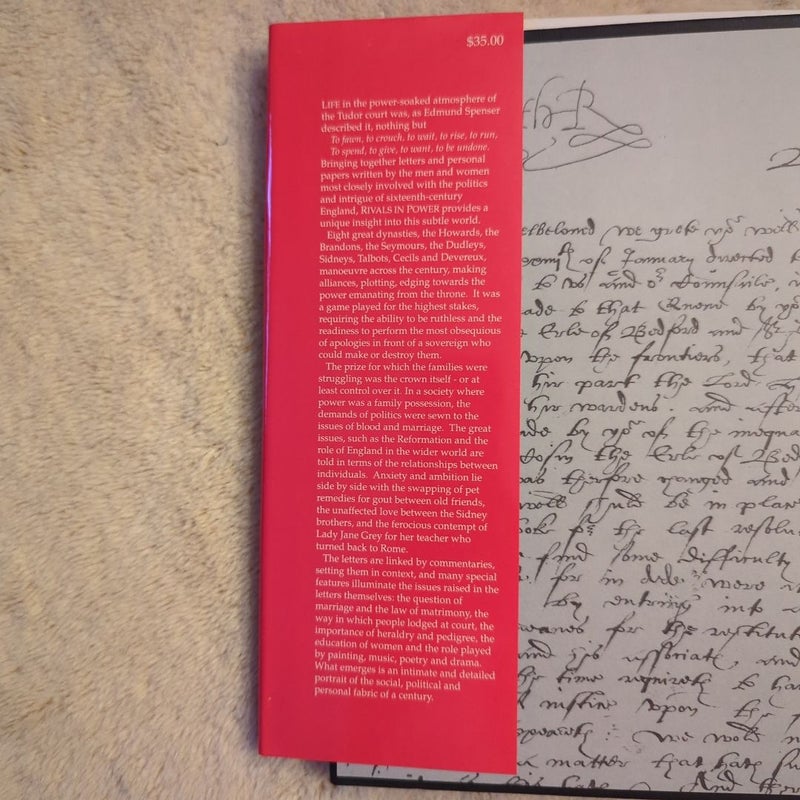 $35.00
LIFE in the power-soaked atmosphere of
the Tudor court was, as Edmund Spenser
described it, nothing but
To fawn, to crouch, to wait, to rise, to run,
To spend, to give, to want, to be undone.
Bringing together letters and personal
papers written by the men and women
most closely involved with the politics
and intrigue of sixteenth-century
England, RIVALS IN POWER provides a
unique insight into this subtle world.
Eight great dynasties, the Howards, the
Brandons, the Seymours, the Dudleys,
Sidneys, Talbots, Cecils and Devereux,
manoeuvre across the century, making
alliances, plotting, edging towards the
power emanating from the throne. It was
a game played for the highest stakes,
requiring the ability to be ruthless and the
readiness to perform the most obsequious
of apologies in front of a sovereign who
could make or destroy them.
The prize for which the families were
struggling was the crown itself - or at
least control over it. In a society where
power was a family possession, the
demands of politics were sewn to the
issues of blood and marriage. The great
issues, such as the Reformation and the
role of England in the wider world are
told in terms of the relationships between
individuals. Anxiety and ambition lie
side by side with the swapping of pet
remedies for gout between old friends,
the unaffected love between the Sidney
brothers, and the ferocious contempt of
Lady Jane Grey for her teacher who
turned back to Rome.
The letters are linked by commentaries,
setting them in context, and many special
features illuminate the issues raised in the
letters themselves: the question of
marriage and the law of matrimony, the
way in which people lodged at court, the
importance of heraldry and pedigree, the
education of women and the role played
by painting, music, poetry and drama.
What emerges is an intimate and detailed
portrait of the social, political and
personal fabric of a century.
we grete
of January directed
to that Quene by
Erle of Bedford and
upon the frontiers, that
his part the Lord
his wardens. and after
by of the
the Erle of
therfore and
be in place
the last
find some difficulty
for in dede were
by entring into
for the
and his associate, and
the time to
upon the
We
matter that hath
And